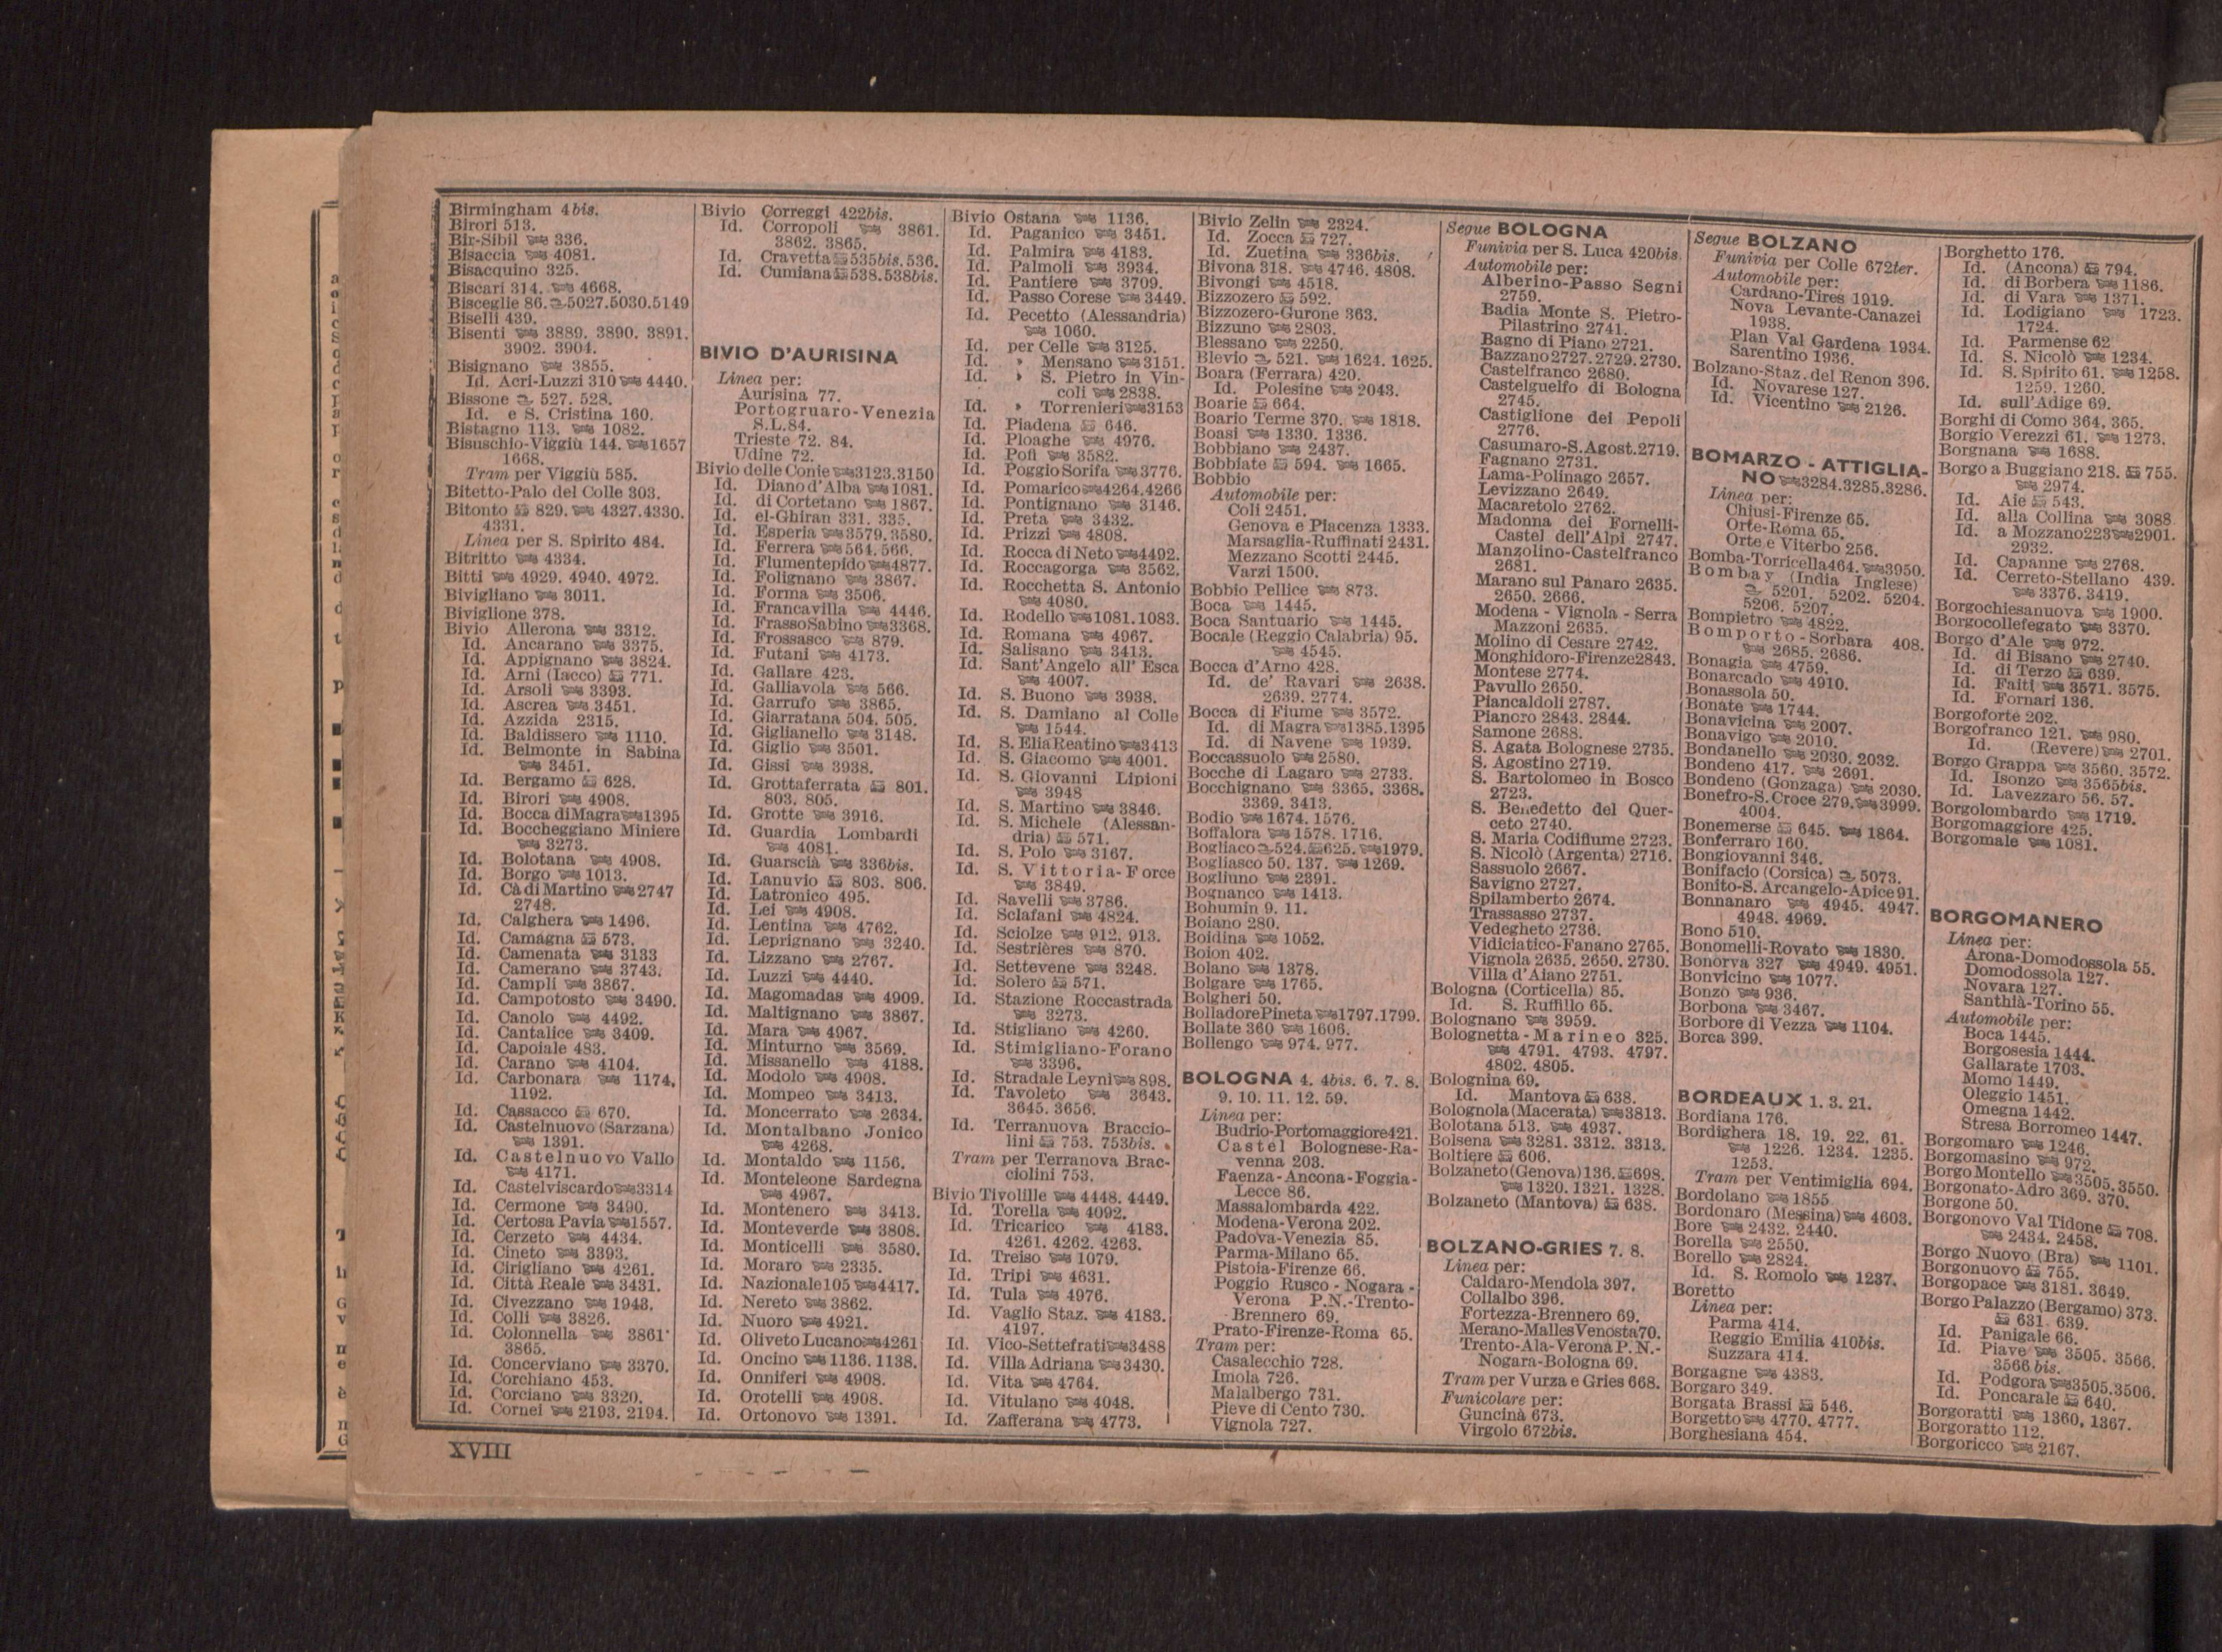 Birmingham 4bis.
Birori 513.
Bir-Sibil 336.
Bisaccia 4081.
Bisacquino 325.
Biscari 314. 4668.
Bisceglie 86. 5027.5030.5149
Biselli 439.
Bisenti 3889. 3890. 3891.
3902. 3904.
Bisignano 3855.
Id. Acri-Luzzi 310 4440.
Bissone 527. 528.
Id. e S. Cristina 160.
Bistagno 113. 1082.
Bisuschio-Viggiù 144. 1657
1668.
Tram per Viggiù 585.
Bitetto-Palo del Colle 303.
Bitonto 829. 4327.4330.
4331.
Linea per S. Spirito 484.
Bitritto 4334.
Bitti 4929. 4940. 4972.
Bivigliano 3011.
Biviglione 378.
Bivio Allerona 3312.
Id. Ancarano 3375.
Id. Appignano 3824.
Id. Arni (Iacco) 771.
Id. Arsoli 3393.
Id. Ascrea 3451.
Id. Azzida 2315.
Id. Baldissero 1110.
Id. Belmonte in Sabina
3451.
Id. Bergamo 628.
Id. Birori 4908.
Id. Bocca di Magra 1395
Id. Boccheggiano Miniere
3273.
Id. Bolotana 4908.
Id. Borgo 1013.
Id. Cà di Martino 2747
2748.
Id. Calghera 1496.
Id. Camagna 573.
Id. Camenata 3133
Id. Camerano 3743.
Id. Campli 3867.
Id. Campotosto 3490.
Id. Canolo 4492.
Id. Cantalice 3409.
Id. Capoiale 483.
Id. Carano 4104.
Id. Carbonara 1174.
1192.
Id. Cassacco 670.
Id. Castelnuovo (Sarzana)
1391.
Id. Castelnuovo Vallo
4171.
Id. Castelviscardo 3314
Id. Cermone 3490.
Id. Certosa Pavia 1557.
Id. Cerzeto 4434.
Id. Cineto 3393.
Id. Cirigliano 4261.
Id. Città Reale 3431.
Id. Civezzano 1943.
Id. Colli 3826.
Id. Colonnella 3861
3865.
Id. Concerviano 3370.
Id. Corchiano 453.
Id. Corciano 3320.
Id. Cornei 2193. 2194.
Bivio Correggi 422bis.
Id. Corropoli 3861.
3862. 3865.
Id. Cravetta 535bis. 536.
Id. Cumiana 538.538bis.
BIVIO D'AURISINA
Linea per:
Aurisina 77.
Portogruaro-Venezia
S.L.84.
Trieste 72. 84.
Udine 72.
Bivio delle Conie 3123.3150
Id. Diano d'Alba 1081.
Id. di Cortetano 1867.
Id. el-Ghiran 331. 335.
Id. Esperia 3579. 3580.
Id. Ferrera 564. 566.
Id. Flumentepido 4877.
Id. Folignano 3867.
Id. Forma 3506.
Id. Francavilla 4446.
Id. Frasso Sabino 3368.
Id. Frossasco 879.
Id. Futani 4173.
Id. Gallare 423.
Id. Galliavola 566.
Id. Garrufo 3865.
Id. Giarratana 504. 505.
Id. Giglianello 3148.
Id. Giglio 3501.
Id. Gissi 3938.
Id. Grottaferrata 801.
803. 805.
Id. Grotte 3916.
Id. Guardia Lombardi
4081.
Id. Guarscià 336bis.
Id. Lanuvio 803. 806.
Id. Latronico 495.
Id. Lei 4908.
Id. Lentina 4762.
Id. Leprignano 3240.
Id. Lizzano 2767.
Id. Luzzi 4440.
Id. Magomadas 4909.
Id. Maltignano 3867.
Id. Mara 4967.
Id. Minturno 3569.
Id. Missanello 4188.
Id. Modolo 4908.
Id. Mompeo 3413.
Id. Moncerrato 2634.
Id. Montalbano Jonico
4268.
Id. Montaldo 1156.
Id. Monteleone Sardegna
4967.
Id. Montenero 3413.
Id. Monteverde 3808.
Id. Monticelli 3580.
Id. Moraro 2335.
Id. Nazionale 105 4417.
Id. Nereto 3862.
Id. Nuoro 4921.
Id. Oliveto Lucano 4261
Id. Oncino 1136. 1138.
Id. Onniferi 4908.
Id. Orotelli 4908.
Id. Ortonovo 1391.
Bivio Ostana 1136.
Id. Paganico 3451.
Id. Palmira 4183.
Id. Palmoli 3934.
Id. Pantiere 3709.
Id. Passo Corese 3449.
Id. Pecetto (Alessandria)
1060.
Id. per Celle 3125.
Id. » Mensano 3151.
Id. » S. Pietro in Vin-
coli 2838.
Id. » Torrenieri 3153
Id. Piadena 646.
Id. Ploaghe 4976.
Id. Pofi 3582.
Id. Poggio Sorifa 3776.
Id. Pomarico 4264.4266
Id. Pontignano 3146.
Id. Preta 3432.
Id. Prizzi 4808.
Id. Rocca di Neto 4492.
Id. Roccagorga 3562.
Id. Rocchetta S. Antonio
4080.
Id. Rodello 1081.1083.
Id. Romana 4967.
Id. Salisano 3413.
Id. Sant'Angelo all' Esca
4007.
Id. S. Buono 3938.
Id. S. Damiano al Colle
1544.
Id. S. Elia Reatino 3413
Id. S. Giacomo 4001.
Id. S. Giovanni Lipioni
3948
Id. S. Martino 3846.
Id. S. Michele (Alessan-
dria) 571.
Id. S. Polo 3167.
Id. S. Vittoria-Force
3849.
Id. Savelli 3786.
Id. Sclafani 4824.
Id. Sciolze 912. 913.
Id. Sestrières 870.
Id. Settevene 3248.
Id. Solero 571.
Id. Stazione Roccastrada
3273.
Id. Stigliano 4260.
Id. Stimigliano-Forano
3396.
Id. Stradale Leynì 898.
Id. Tavoleto 3643.
3645. 3656.
Id. Terranuova Braccio-
lini 753. 753bis.
Tram per Terranova Brac-
ciolini 753.
Bivio Tivolille 4448. 4449.
Id. Torella 4092.
Id. Tricarico 4183.
4261. 4262. 4263.
Id. Treiso 1079.
Id. Tripi 4631.
Id. Tula 4976.
Id. Vaglio Staz. 4183.
4197.
Id. Vico-Settefrati 3488
Id. Villa Adriana 3430.
Id. Vita 4764.
Id. Vitulano 4048.
Id. Zafferana 4773.
Bivio Zelin 2324.
Id. Zocca 727.
Id. Zuetina 336bis.
Bivona 318. 4746. 4808.
Bivongi 4518.
Bizzozero 592.
Bizzozero-Gurone 363.
Bizzuno 2803.
Blessano 2250.
Blevio 521. 1624. 1625.
Boara (Ferrara) 420.
Id. Polesine 2043.
Boarie 664.
Boario Terme 370. 1818.
Boasi 1330. 1336.
Bobbiano 2437.
Bobbiate 594. 1665.
Bobbio
Automobile per:
Coli 2451.
Genova e Piacenza 1333.
Marsaglia-Ruffinati 2431.
Mezzano Scotti 2445.
Varzi 1500.
Bobbio Pellice 873.
Boca 1445.
Boca Santuario 1445.
Bocale (Reggio Calabria) 95.
4545.
Bocca d'Arno 428.
Id. de' Ravari 2638.
2639. 2774.
Bocca di Fiume 3572.
Id. di Magra 1385.1395
Id. di Navene 1939.
Boccassuolo 2580.
Bocche di Lagaro 2733.
Bocchignano 3365. 3368.
3369. 3413.
Bodio 1674. 1576.
Boffalora 1578. 1716.
Bogliaco 524. 625. 1979.
Bogliasco 50. 137. 1269.
Bogliuno 2391.
Bognanco 1413.
Bohumin 9. 11.
Boiano 280.
Boidina 1052.
Boion 402.
Bolano 1378.
Bolgare 1765.
Bolgheri 50.
Bolladore Pineta 1797.1799.
Bollate 360 1606.
Bollengo 974. 977.
BOLOGNA 4. 4bis. 6. 7. 8.
9. 10. 11. 12. 59.
Linea per:
Budrio-Portomaggiore 421.
Castel Bolognese-Ra-
venna 203.
Faenza-Ancona-Foggia-
Lecce 86.
Massalombarda 422.
Modena-Verona 202.
Padova-Venezia 85.
Parma-Milano 65.
Pistoia-Firenze 66.
Poggio Rusco - Nogara -
Verona P.N.-Trento-
Brennero 69.
Prato-Firenze-Roma 65.
Tram per:
Casalecchio 728.
Imola 726.
Malalbergo 731.
Pieve di Cento 730.
Vignola 727.
Segue BOLOGNA
Funivia per S. Luca 420bis.
Automobile per:
Alberino-Passo Segni
2759.
Badia Monte S. Pietro-
Pilastrino 2741.
Bagno di Piano 2721.
Bazzano 2727.2729.2730.
Castelfranco 2680.
Castelguelfo di Bologna
2745.
Castiglione dei Pepoli
2776.
Casumaro-S.Agost.2719.
Fagnano 2731.
Lama-Polinago 2657.
Levizzano 2649.
Macaretolo 2762.
Madonna dei Fornelli-
Castel dell'Alpi 2747.
Manzolino-Castelfranco
2681.
Marano sul Panaro 2635.
2650. 2666.
Modena - Vignola - Serra
Mazzoni 2635.
Molino di Cesare 2742.
Monghidoro-Firenze 2843.
Montese 2774.
Pavullo 2650.
Piancaldoli 2787.
Pianoro 2843. 2844.
Samone 2688.
S. Agata Bolognese 2735.
S. Agostino 2719.
S. Bartolomeo in Bosco
2723.
S. Benedetto del Quer-
ceto 2740.
S. Maria Codifiume 2723.
S. Nicolò (Argenta) 2716.
Sassuolo 2667.
Savigno 2727.
Spilamberto 2674.
Trassasso 2737.
Vedegheto 2736.
Vidiciatico-Fanano 2765.
Vignola 2635. 2650. 2730.
Villa d'Aiano 2751.
Bologna (Corticella) 85.
Id. S. Ruffillo 65.
Bolognano 3959.
Bolognetta-Marineo 325.
4791. 4793. 4797.
4802. 4805.
Bolognina 69.
Id. Mantova 638.
Bolognola (Macerata) 3813.
Bolotana 513. 4937.
Bolsena 3281. 3312. 3313.
Boltiere 606.
Bolzaneto (Genova) 136. 698.
1320. 1321. 1328.
Bolzaneto (Mantova) 638.
BOLZANO-GRIES 7. 8.
Linea per:
Caldaro-Mendola 397.
Collalbo 396.
Fortezza-Brennero 69.
Merano-Malles Venosta 70.
Trento-Ala-Verona P. N.-
Nogara-Bologna 69.
Tram per Vurza e Gries 668.
Funicolare per:
Guncinà 673.
Virgolo 672bis.
Segue BOLZANO
Funivia per Colle 672ter.
Automobile per:
Cardano-Tires 1919.
Nova Levante-Canazei
1938.
Plan Val Gardena 1934.
Sarentino 1936.
Bolzano-Staz. del Renon 396.
Id. Novarese 127.
Id. Vicentino 2126.
BOMARZO - ATTIGLIA-
NO 3284.3285.3286.
Linea per:
Chiusi-Firenze 65.
Orte-Roma 65.
Orte e Viterbo 256.
Bomba-Torricella 464. 3950.
Bombay (India Inglese)
5201. 5202. 5204.
5206. 5207.
Bompietro 4822.
Bomporto-Sorbara 408.
2685. 2686.
Bonagia 4759.
Bonarcado 4910.
Bonassola 50.
Bonate 1744.
Bonavicina 2007.
Bonavigo 2010.
Bondanello 2030. 2032.
Bondeno 417. 2691.
Bondeno (Gonzaga) 2030.
Bonefro-S. Croce 279. 3999.
4004.
Bonemerse 645. 1864.
Bonferraro 160.
Bongiovanni 346.
Bonifacio (Corsica) 5073.
Bonito-S. Arcangelo-Apice 91.
Bonnanaro 4945. 4947.
4948. 4969.
Bono 510.
Bonomelli-Rovato 1830.
Bonorva 327 4949. 4951.
Bonvicino 1077.
Bonzo 936.
Borbona 3467.
Borbore di Vezza 1104.
Borca 399.
BORDEAUX 1. 3. 21.
Bordiana 176.
Bordighera 18. 19. 22. 61.
1226. 1234. 1235.
1253.
Tram per Ventimiglia 694.
Bordolano 1855
Bordonaro (Messina) 4603.
Bore 2432. 2440.
Borella 2550.
Borello 2824.
Id. S. Romolo 1237.
Boretto
Linea per:
Parma 414.
Reggio Emilia 410bis.
Suzzara 414.
Borgagne 4383.
Borgaro 349.
Borgata Brassi 546.
Borgetto 4770. 4777.
Borghesiana 454.
Borghetto 176.
Id. (Ancona) 794.
Id. di Borbera 1186.
Id. di Vara 1371.
Id. Lodigiano 1723.
1724.
Id. Parmense 62
Id. S. Nicolò 1234.
Id. S. Spirito 61. 1258.
1259. 1260.
Id. sull'Adige 69.
Borghi di Como 364. 365.
Borgio Verezzi 61. 1273.
Borgnana 1688.
Borgo a Buggiano 218. 755.
2974.
Id. Aie 543.
Id. alla Collina 3088
Id. a Mozzano 223 2901.
2932.
Id. Capanne 2768.
Id. Cerreto-Stellano 439.
3376. 3419.
Borgochiesanuova 1900.
Borgocollefegato 3370.
Borgo d'Ale 972.
Id. di Bisano 2740.
Id. di Terzo 639.
Id. Faiti 3571. 3575.
Id. Fornari 136.
Borgoforte 202.
Borgofranco 121. 980.
Id. (Revere) 2701.
Borgo Grappa 3560. 3572.
Id. Isonzo 3565bis.
Id. Lavezzaro 56. 57.
Borgolombardo 1719.
Borgomaggiore 425.
Borgomale 1081.
BORGOMANERO
Linea per:
Arona-Domodossola 55.
Domodossola 127.
Novara 127.
Santhià-Torino 55.
Automobile per:
Boca 1445.
Borgosesia 1444.
Gallarate 1703.
Momo 1449.
Oleggio 1451.
Omegna 1442.
Stresa Borromeo 1447.
Borgomaro 1246.
Borgomasino 972.
Borgo Montello 3505.3550.
Borgonato-Adro 369. 370.
Borgone 50.
Borgonovo Val Tidone 708.
2434. 2458.
Borgo Nuovo (Bra) 1101.
Borgonuovo 755.
Borgopace 3181. 3649.
Borgo Palazzo (Bergamo) 373.
631. 639.
Id. Panigale 66.
Id. Piave 3505. 3566.
3566bis.
Id. Podgora 3505.3506.
Id. Poncarale 640.
Borgoratti 1360. 1367.
Borgoratto 112.
Borgoricco 2167.
XVIII